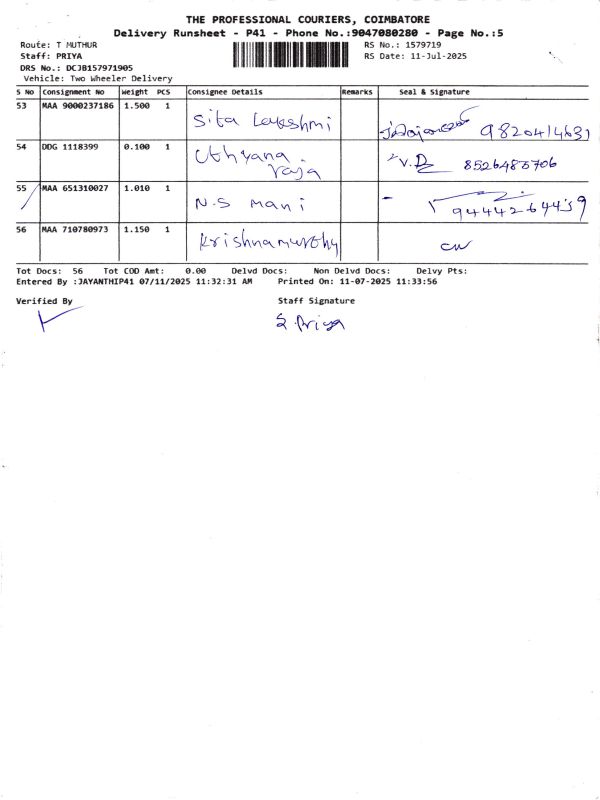 THE PROFESSIONAL COURIERS, COIMBATORE
Delivery Runsheet - P41 - Phone No.:9047080280 - Page No.:5
Route: T MUTHUR RS No.: 1579719
Staff: PRIYA RS Date: 11-Jul-2025
DRS No.: DCJB157971905
Vehicle: Two Wheeler Delivery
S No Consignment No Weight PCS Consignee Details Remarks Seal & Signature
53 MAA 9000237186 1.500 1 Sita Lakshmi 9820414631
54 DDG 1118399 0.100 1 Uthyana raja V.D 8526485706
55 MAA 651310027 1.010 1 N.S Mani 9444264459
56 MAA 710780973 1.150 1 Krishnamurthy
Tot Docs: 56 Tot COD Amt: 0.00 Delvd Docs: Non Delvd Docs: Delvy Pts:
Entered By :JAYANTHIP41 07/11/2025 11:32:31 AM Printed On: 11-07-2025 11:33:56
Verified By Staff Signature
S. Priya